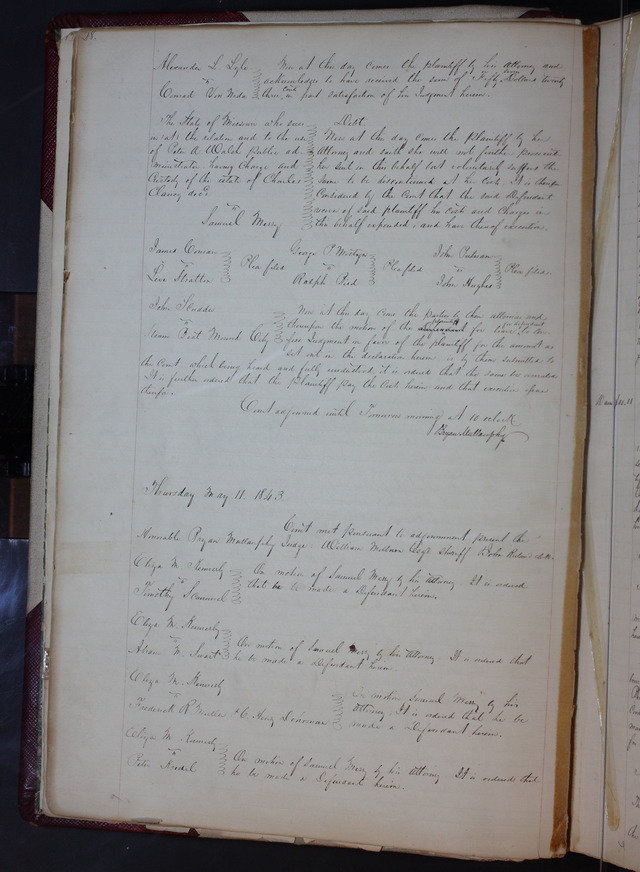 18.
Alexander L Lyle
vs
Conrad Von
Now at this day comes the plaintiff by his attorney and
acknowledges to have received the sum of Fifty Dollars twenty
three cents in part satisfaction of his Judgment herein.
The State of Missouri who sues
at the relation and to the use
of Peter A Walsh public ad
ministrator having Charge and
Custody of the estate of Charles
decd.
vs
Samuel Merry
Debt.
Now at this day comes the Plaintiff by her
Attorney and saith she will not further prosecute
her suit in this behalf but voluntarily suffers the
same to be discontinued at her Cost. It is therefore
Considered by the Court that the said Defendant
recover of said plaintiff his Costs and Charges in
this behalf expended, and have thereof execution.
James
vs
Levi Stratton
Plea filed
George P
vs
Ralph
Plea filed
John
vs
John Hughes
Plea filed
John Scudder
vs
Steam Boat Mound City
Now at this day come the parties by their attornies and
thereupon the motion of the for leave to
Judgment in favor of the plaintiff for the amount as
set out in the declaration herein by them submitted to
the Court, which being heard and fully understood, it is ordered that the same be
It is further ordered that the Plaintiff pay the Costs herein and that execution issue
therefor.
Court adjourned until Tomorrow morning at 10 oclock
Bryan Mullanphy
Thursday May 11. 1843.
Court met pursuant to adjournment present the
Honorable Bryan Mullanphy Judge. William Milburn Esqr Sheriff & John
Eliza M. Kennerly
vs
Timothy
On motion of Samuel Merry by his Attorney It is ordered
that he be made a Defendant herein.
Eliza M. Kennerly
vs
M.
On motion of Samuel Merry by his attorney. It is ordered that
he be made a Defendant herein
Eliza M. Kennerly
vs
Frederick R & C. Henry
On motion Samuel Merry by his
Attorney. It is ordered that he be
made a Defendant herein.
Eliza M. Kennerly
vs
Peter
On motion of Samuel Merry by his Attorney It is ordered that
he be made a Defendant herein.